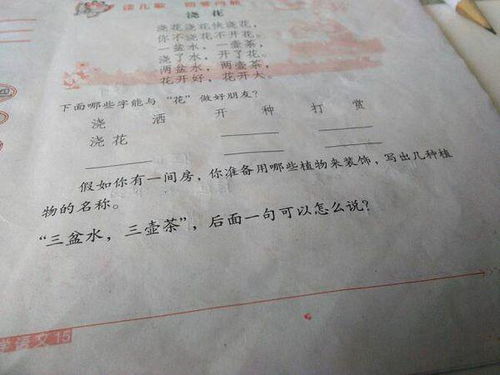 读儿歌 回答问题
浇花
浇花浇花快浇花,
你不浇花不开花。
一盆水,一壶茶,
浇了水,开了花。
两盆水,两壶茶,
花开好,花开大。
下面哪些字能与“花”做好朋友?
浇 洒 开 种 打 赏
浇花
假如你有一间房,你准备用哪些植物来装饰,写出几种植
物的名称。
“三盆水,三壶茶”,后面一句可以怎么说?
学语文 15